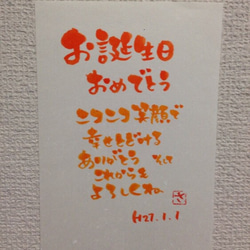 お誕生日
おめでとう
ニコニコ笑顔で
幸せとどける
ありがとう そして
これからも
よろしくね。
H27.1.1